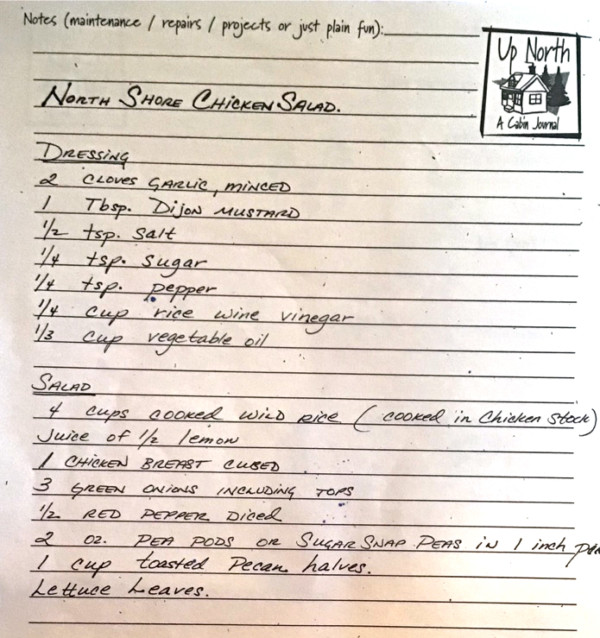 Notes (maintenance / repairs / projects or just plain fun):
Up North
A Cabin Journal
North Shore Chicken Salad.
Dressing
2 cloves garlic, minced
1 Tbsp. Dijon mustard
1/2 tsp. salt
1/4 tsp. sugar
1/4 tsp. pepper
1/4 cup rice wine vinegar
1/3 cup vegetable oil
Salad
4 cups cooked wild rice (cooked in chicken stock)
Juice of 1/2 lemon
1 chicken breast cubed
3 green onions including tops
1/2 red pepper diced
2 oz. pea pods or sugar snap peas in 1 inch
1 cup toasted Pecan halves.
Lettuce Leaves.